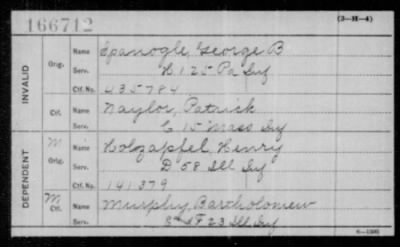 166712
(3-H-4)
INVALID
Orig.
Name Spanogle, George B
Serv. H. 125 Pa Inf
Ctf. No. 435784
Ctf.
Name Naylor, Patrick
Serv. C 15 Mass Inf
DEPENDENT
M
Orig.
Name Holzapfel, Henry
Serv. D 58 Ill Inf
Ctf. No. 141379
M
Ctf.
Name Murphy, Bartholomew
Serv. & F 23 Ill Inf